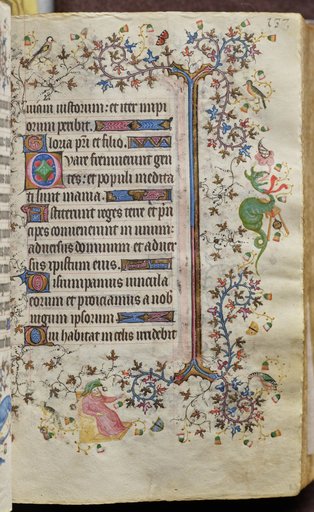 niam iustorum: et iter impi
orum peribit.
Gloria pri et filio.
Quare fremuerunt gen
tes: et populi medita
ti sunt inania.
Astiterunt reges terre et prin
cipes convenerunt in unum:
adversus dominum et adver
sus xpistum eius.
Disrumpamus vincula
eorum et proiciamus a nob
iugum ipsorum.
Qui habitat in celis irridebit